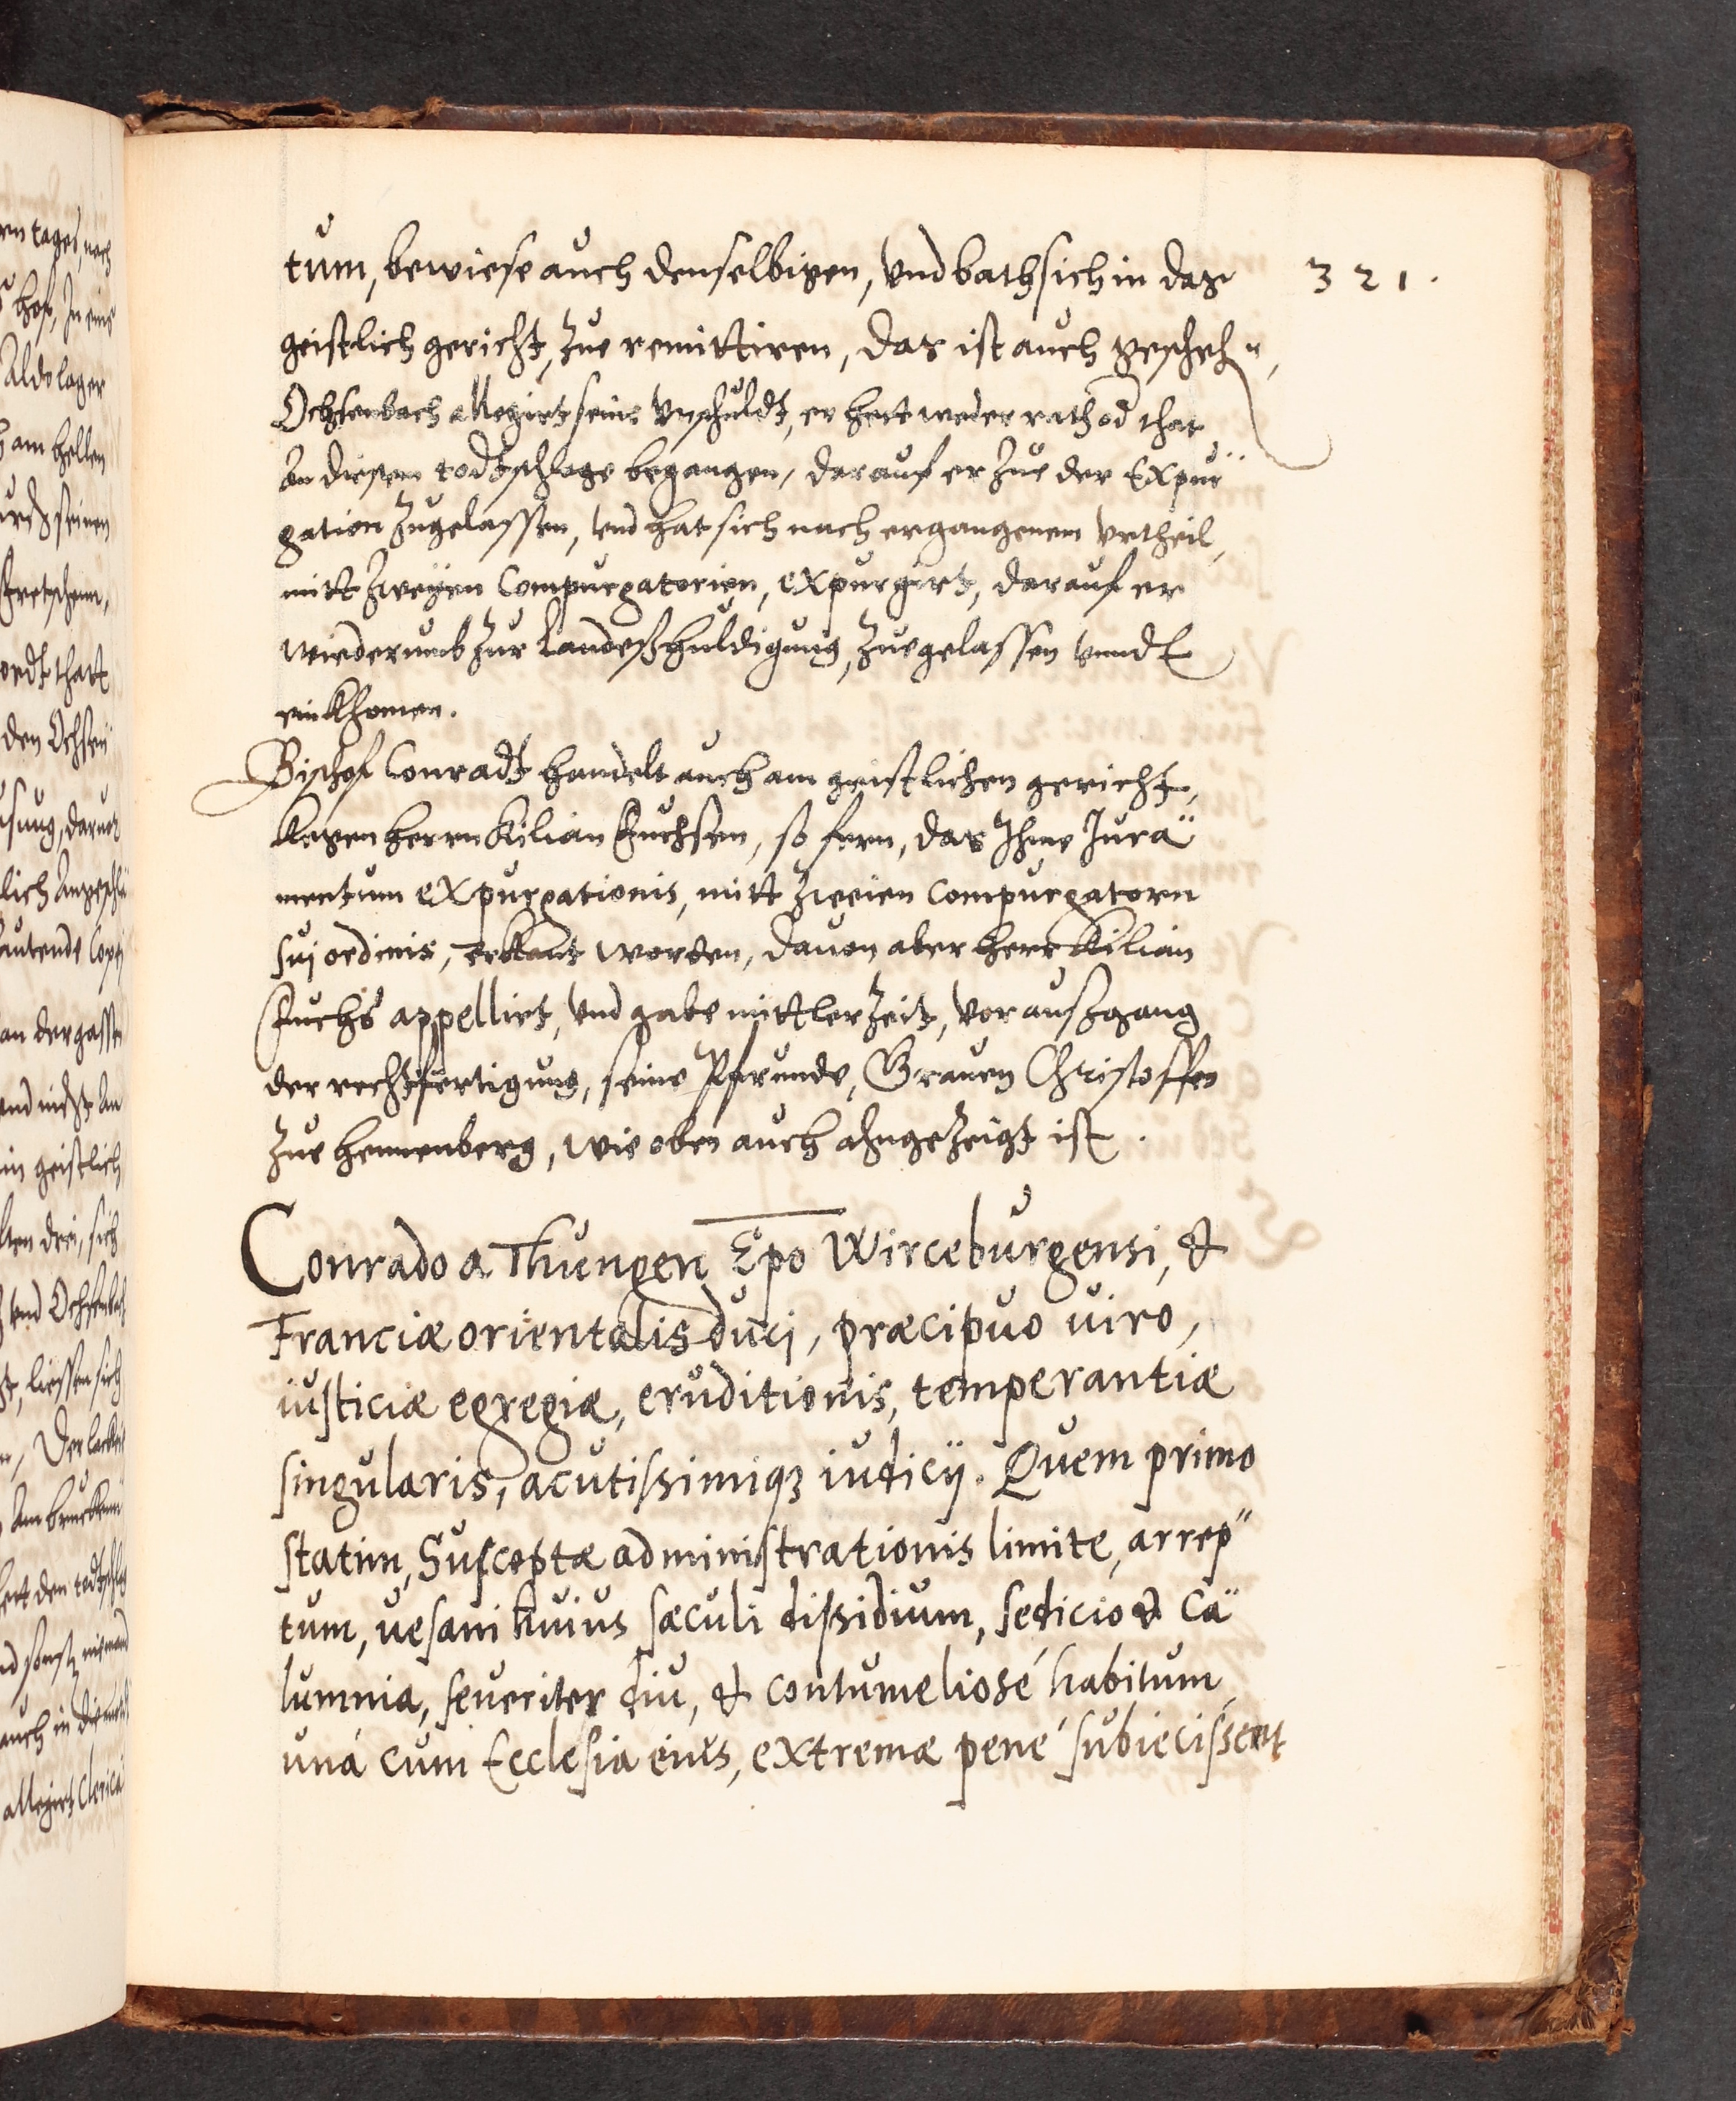 321.
tum, bewiese auch denselbigen, vnd bath sich in das
geistlich gericht, zue remittiren, das ist auch geschehn,
Ochsenbach allegirt seine vnschuldt, er hett weder rath od that
an diesem todtschlage begangen, darauf er zue der Expur¨
gation zugelassen, vnd hat sich nach ergangenem vrtheil,
mitt zweyen Compurgatorien, expurgirt, darauf er
wiederumb zur Landeßhuldigung, zuegelassen vnndt
einkhomen.
Bischof Conradt handelt auch am geistlichen gericht,
kegen herrn Kilian Fuchsen, so fern, das Ihme Jura¨
mentum expurgationis, mitt zweien Compurgatorn
suj ordinis, erkant worden, dauon aber herr Kilian
Fuchs appellirt, vnd gabe mittler zeit, vor außgang
der rechtfertigung, seine Pfrunde, Grauen Christoffen
zue hennenberg, wie oben auch ahngezeigt ist.
Conrado a Thungen Epo Wirceburgensi, &
Franciæ orientalis duci, præcipuo viro,
iusticiæ egregiæ, eruditionis, temperantiæ
singularis, acutissimiq3 iudicij. Quem primo
statim, Susceptæ administrationis limite, arrep¨
tum, uesani huius sæculi dissidium, sedicio & Ca¨
lumnia, seueriter diu, & contumeliosé habitum
uná cum Ecclesia eius, extremæ pené subiecissent